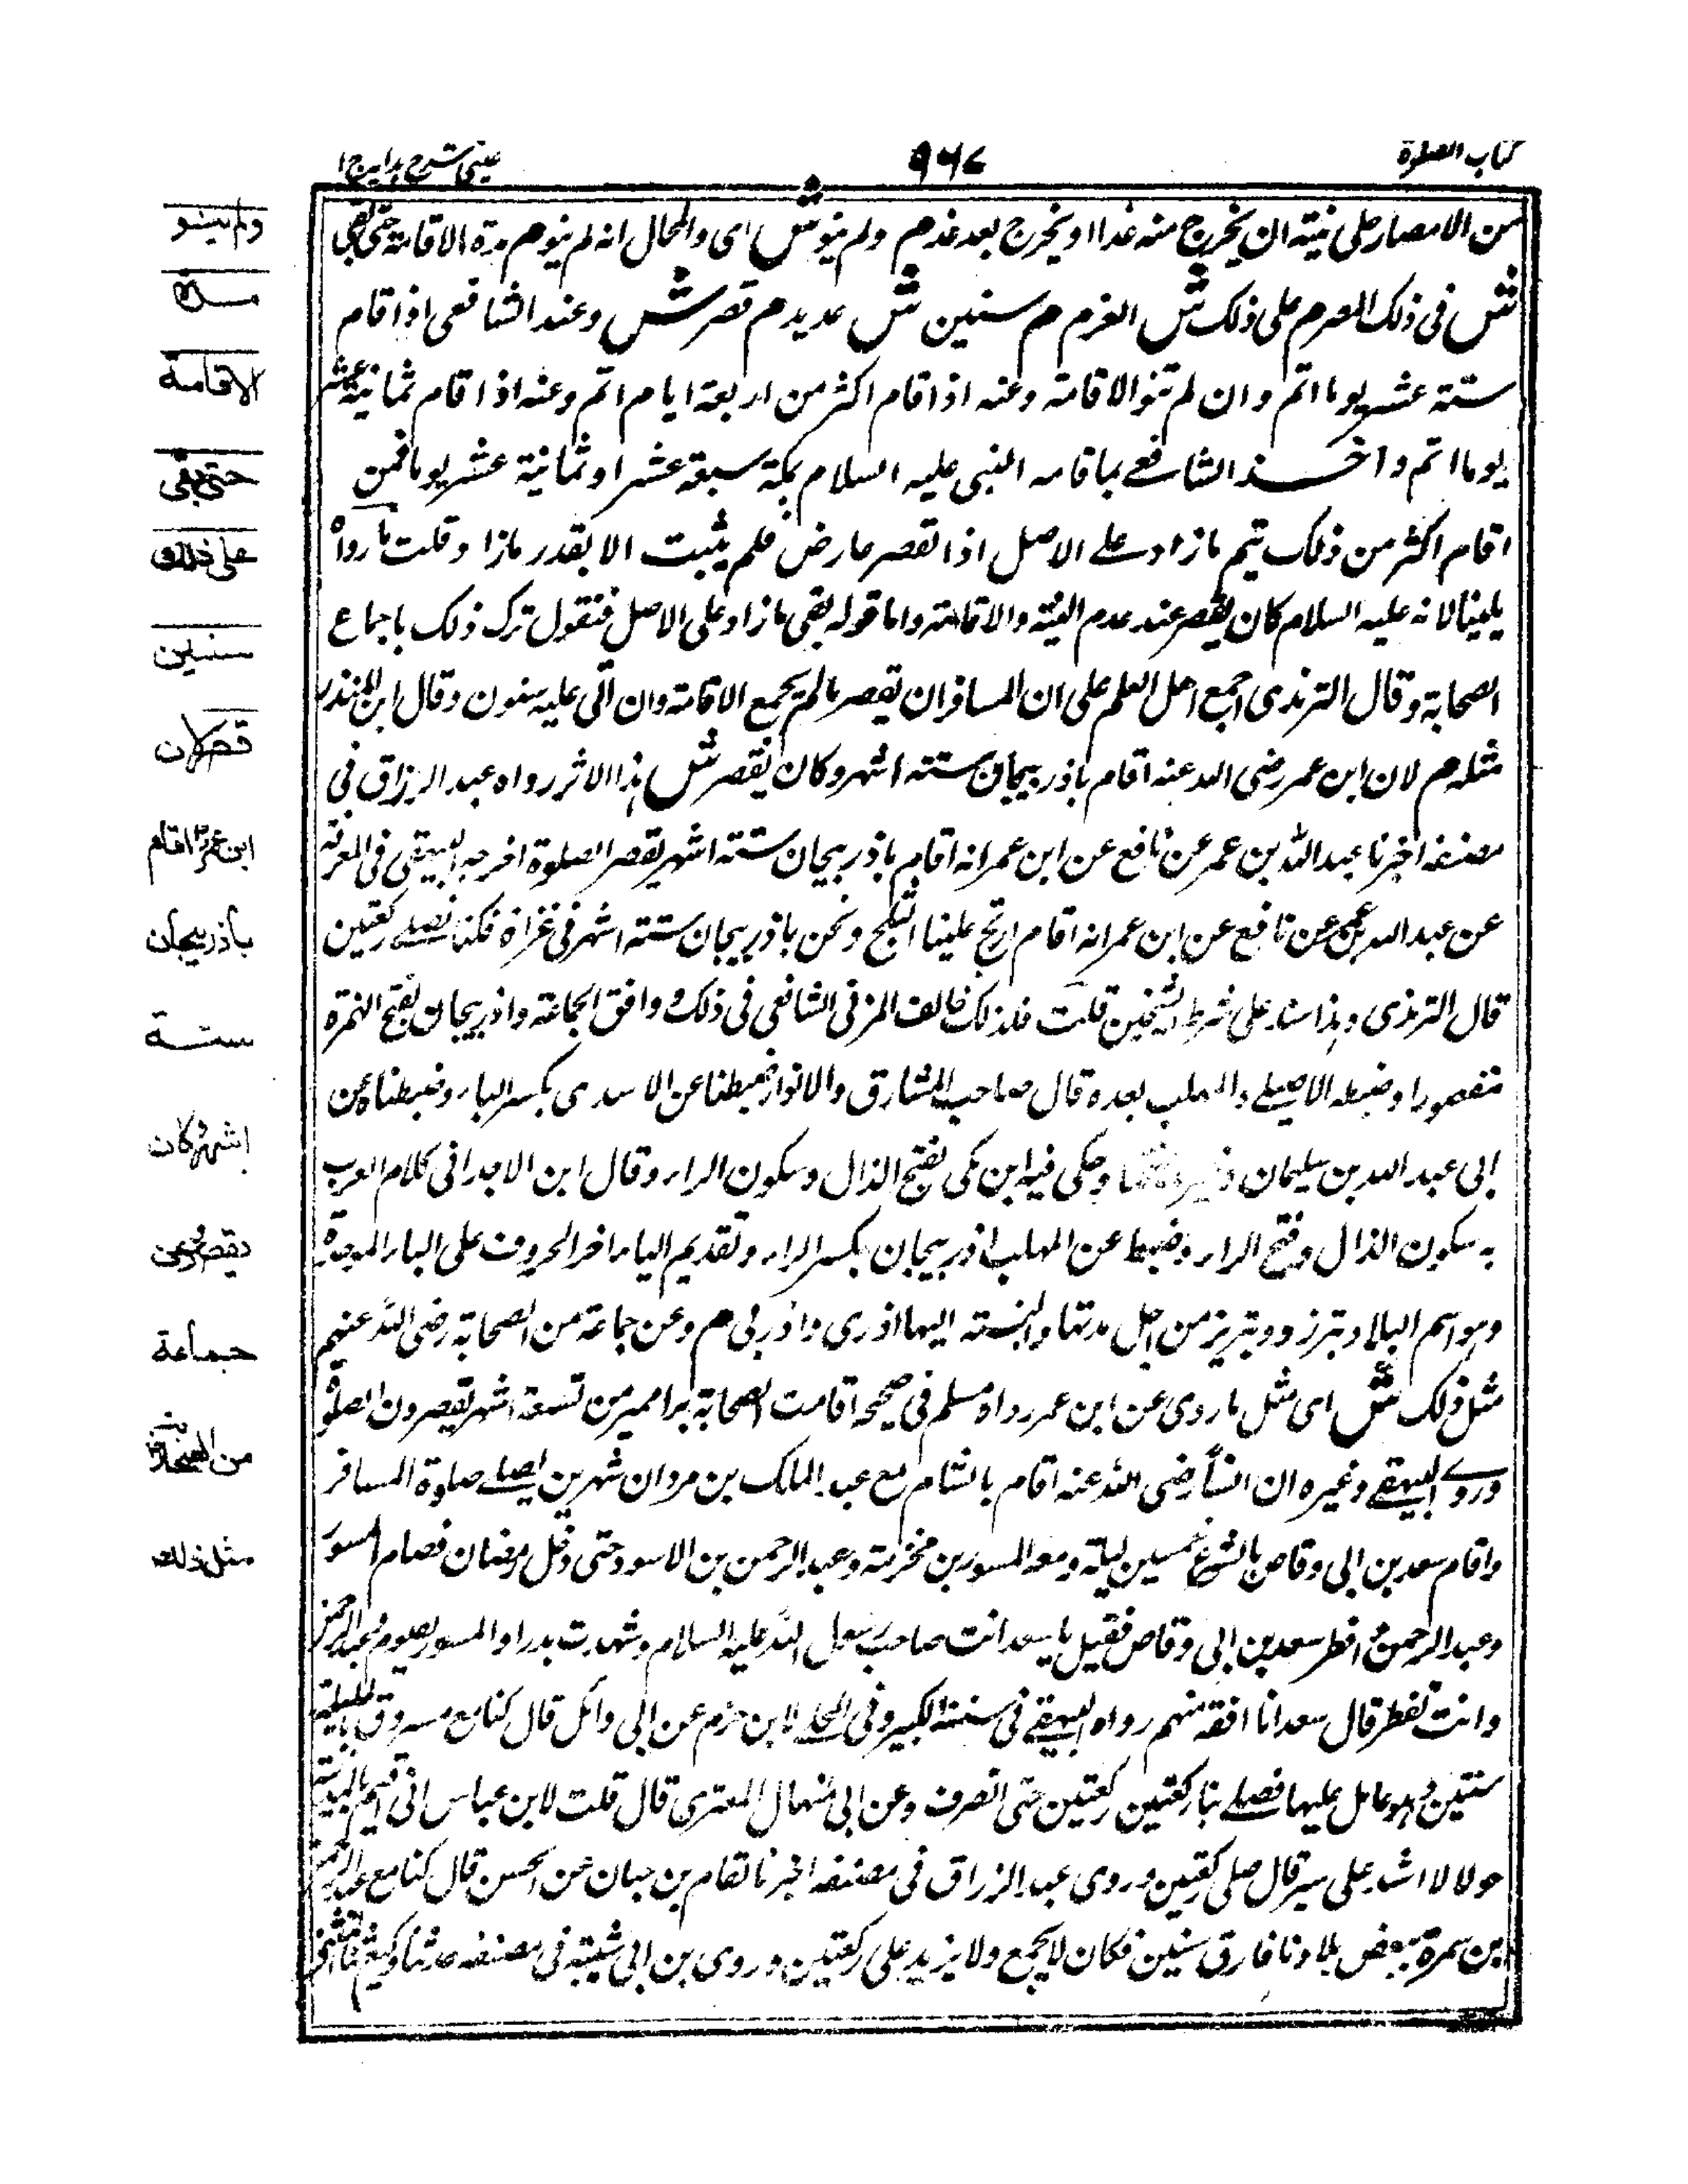 كتاب الصلوة
٩٦٧
عيني شرح هدايه ج ا
من الامصار على نية ان يخرج منه غدا او يخرج بعد غد م ولم ينو ش اى والحال انه لم ينو م مدة الاقامة حتى بقى
ش فى ذلك المصر م على ذلك ش العزم م سنين ش عديد م قصر ش وعند الشافعى اذا اقام
ستة عشر يوما اتم وان لم تنو الاقامة وعنه اذا اقام اكثر من اربعة ايام اتم وعنه اذا اقام ثمانية عشر
يوما اتم واخذ الشافعے بما قامه النبى عليه السلام بمكة سبعة عشر او ثمانية عشر يوما فمن
اقام اكثر من ذلك تيم ما زاد علے الاصل اذا القصر عارض فلم يثبت الا بقدر ما زا وقلت ما رواه
يلينا لانه عليه السلام كان يقصر عند عدم النية والاقامة واما قوله بقى ما زاد على الاصل فنقول ترك ذلك باجماع
الصحابة وقال الترمذى اجمع اهل العلم على ان المسافر ان يقصر ما لم يجمع الاقامة وان اتى عليه سنون وقال ابن المنذر
مثله م لان ابن عمر رضى الله عنه اقام باذربيجان ستة اشهر وكان يقصر ش هذا الاثر رواه عبد الرزاق فى
مصنفه اخبرنا عبد الله بن عمر عن نافع عن ابن عمر انه اقام باذربيجان ستة اشهر يقصر الصلوة اخرجه البيهقى فى المعرفة
عن عبد الله بن عمر عن نافع عن ابن عمر انه اقام ارتج علينا الثلج ونحن باذربيجان ستة اشهر فى غزاة فكنا نصلے ركعتين
قال الترمذى وهذا سند على شرط الشيخين قلت فلذلك خالف المزنى الشافعى فى ذلك و وافق الجماعة واذربيجان بفتح الهمزة
مقصورا وضبطه الاصيلے والمهلب بعده قال صاحب المشارق والانوار ضبطنا عن الاسدى بكسر الباء وضبطناه عن
ابى عبد الله بن سليمان وحكى فيه ابن مكى بفتح الذال وسكون الراء وقال ابن الاجدابى كلام العرب
به سكون الذال وفتح الراء وضبط عن المهلب اذربيجان بكسر الراء وتقديم الياء اخر الحروف على الباء الموحدة
وهو اسم البلاد تبرز و وتبريز من اجل مدتها والنسبة اليها اذرى واذربى م وعن جماعة من الصحابة رضى الله عنهم
مثل ذلك ش اى مثل ما روى عن ابن عمر رواه مسلم فى صحيحه اقامت الصحابة برامهرمز تسعة اشهر يقصرون الصلوة
وروے البيهقے وغيره ان انسا رضى الله عنه اقام بالشام مع عبد الملك بن مروان شهرين يصلے صلوة المسافر
واقام سعد بن ابى وقاص بالشرع خمسين ليلة ومعه المسور بن مخرمة وعبد الرحمن بن الاسود حتى دخل رمضان فصام المسور
وعبد الرحمن و افطر سعد بن ابى وقاص فقيل يا سعد انت صاحب رسول الله عليه السلام وشهدت بدرا والمسور يصوم وعبد الرحمن
وانت تفطر قال سعد انا افقه منهم رواه البيهقے فى سننه الكبير وفى المحلے لابن حزم عن ابى وائل قال كنا مع مسروق بالسلسلة
سنتين وهو عامل عليها فصلے بنا ركعتين ركعتين حتى انصرف وعن ابى منهال العنزى قال قلت لابن عباس انى اقيم بالمدينة
حولا لا اشد على سير قال صلى ركعتين وروى عبد الرزاق فى مصنفه اخبرنا هشام بن حسان عن الحسن قال كنا مع عبد الرحمن
ابن سمرة ببعض بلاد نا فارق سنين فكان لا يجمع ولا يزيد على ركعتين و روى بن ابى شيبة فى مصنفه حدثنا وكيع ثنا
ولم ينو
مدة
الاقامة
حتى بقى
على ذلك
سنين
قصر لان
ابن عمر اقام
باذربيجان
ستة
اشهر وكان
يقصر وعن
جماعة
من الصحابة
مثل ذلك